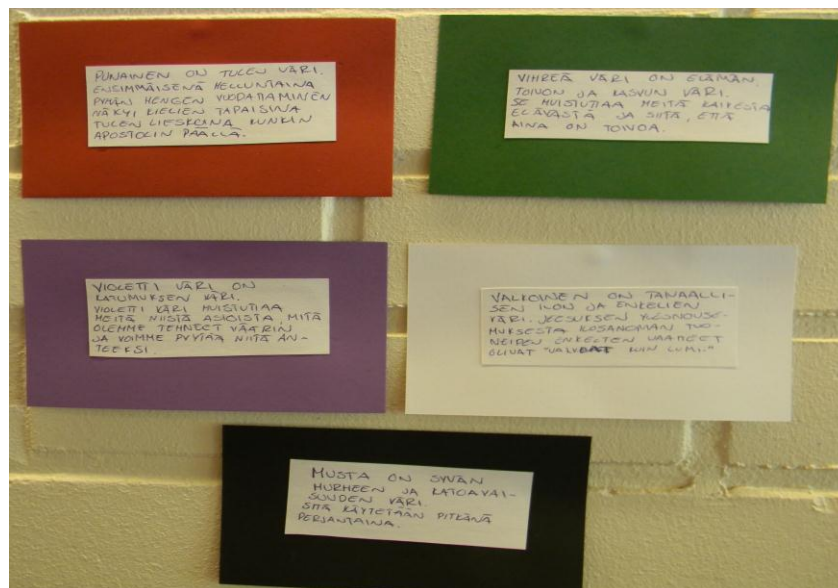 PUNAINEN ON TULEN VÄRI.
ENSIMMÄISENÄ HELLUNTAINA
PYHÄN HENGEN VUODATTAMINEN
NÄKYI KIELIEN TAPAISINA
TULEN LIESKOINA KUNKIN
APOSTOLIN PÄÄLLÄ.
VIHREÄ VÄRI ON ELÄMÄN,
TOIVON JA KASVUN VÄRI.
SE MUISTUTTAA MEITÄ KAIKESTA
ELÄVÄSTÄ JA SIITÄ, ETTÄ
AINA ON TOIVOA.
VIOLETTI VÄRI ON
KATUMUKSEN VÄRI.
VIOLETTI VÄRI MUISTUTTAA
MEITÄ NIISTÄ ASIOISTA, MITÄ
OLEMME TEHNEET VÄÄRIN
JA VOIMME PYYTÄÄ NIITÄ AN-
TEEKSI.
VALKOINEN ON TAIVAALLI-
SEN ILON JA ENKELIEN
VÄRI. JEESUKSEN YLÖSNOUSE-
MUKSESTA ILOSANOMAN TUO-
NEIDEN ENKELTEN VAATTEET
OLIVAT "VALKOAT KUIN LUMI."
MUSTA ON SYVÄN
MURHEEN JA KATOAVAI-
SUUDEN VÄRI.
SITÄ KÄYTETÄÄN PITKÄNÄ
PERJANTAINA.